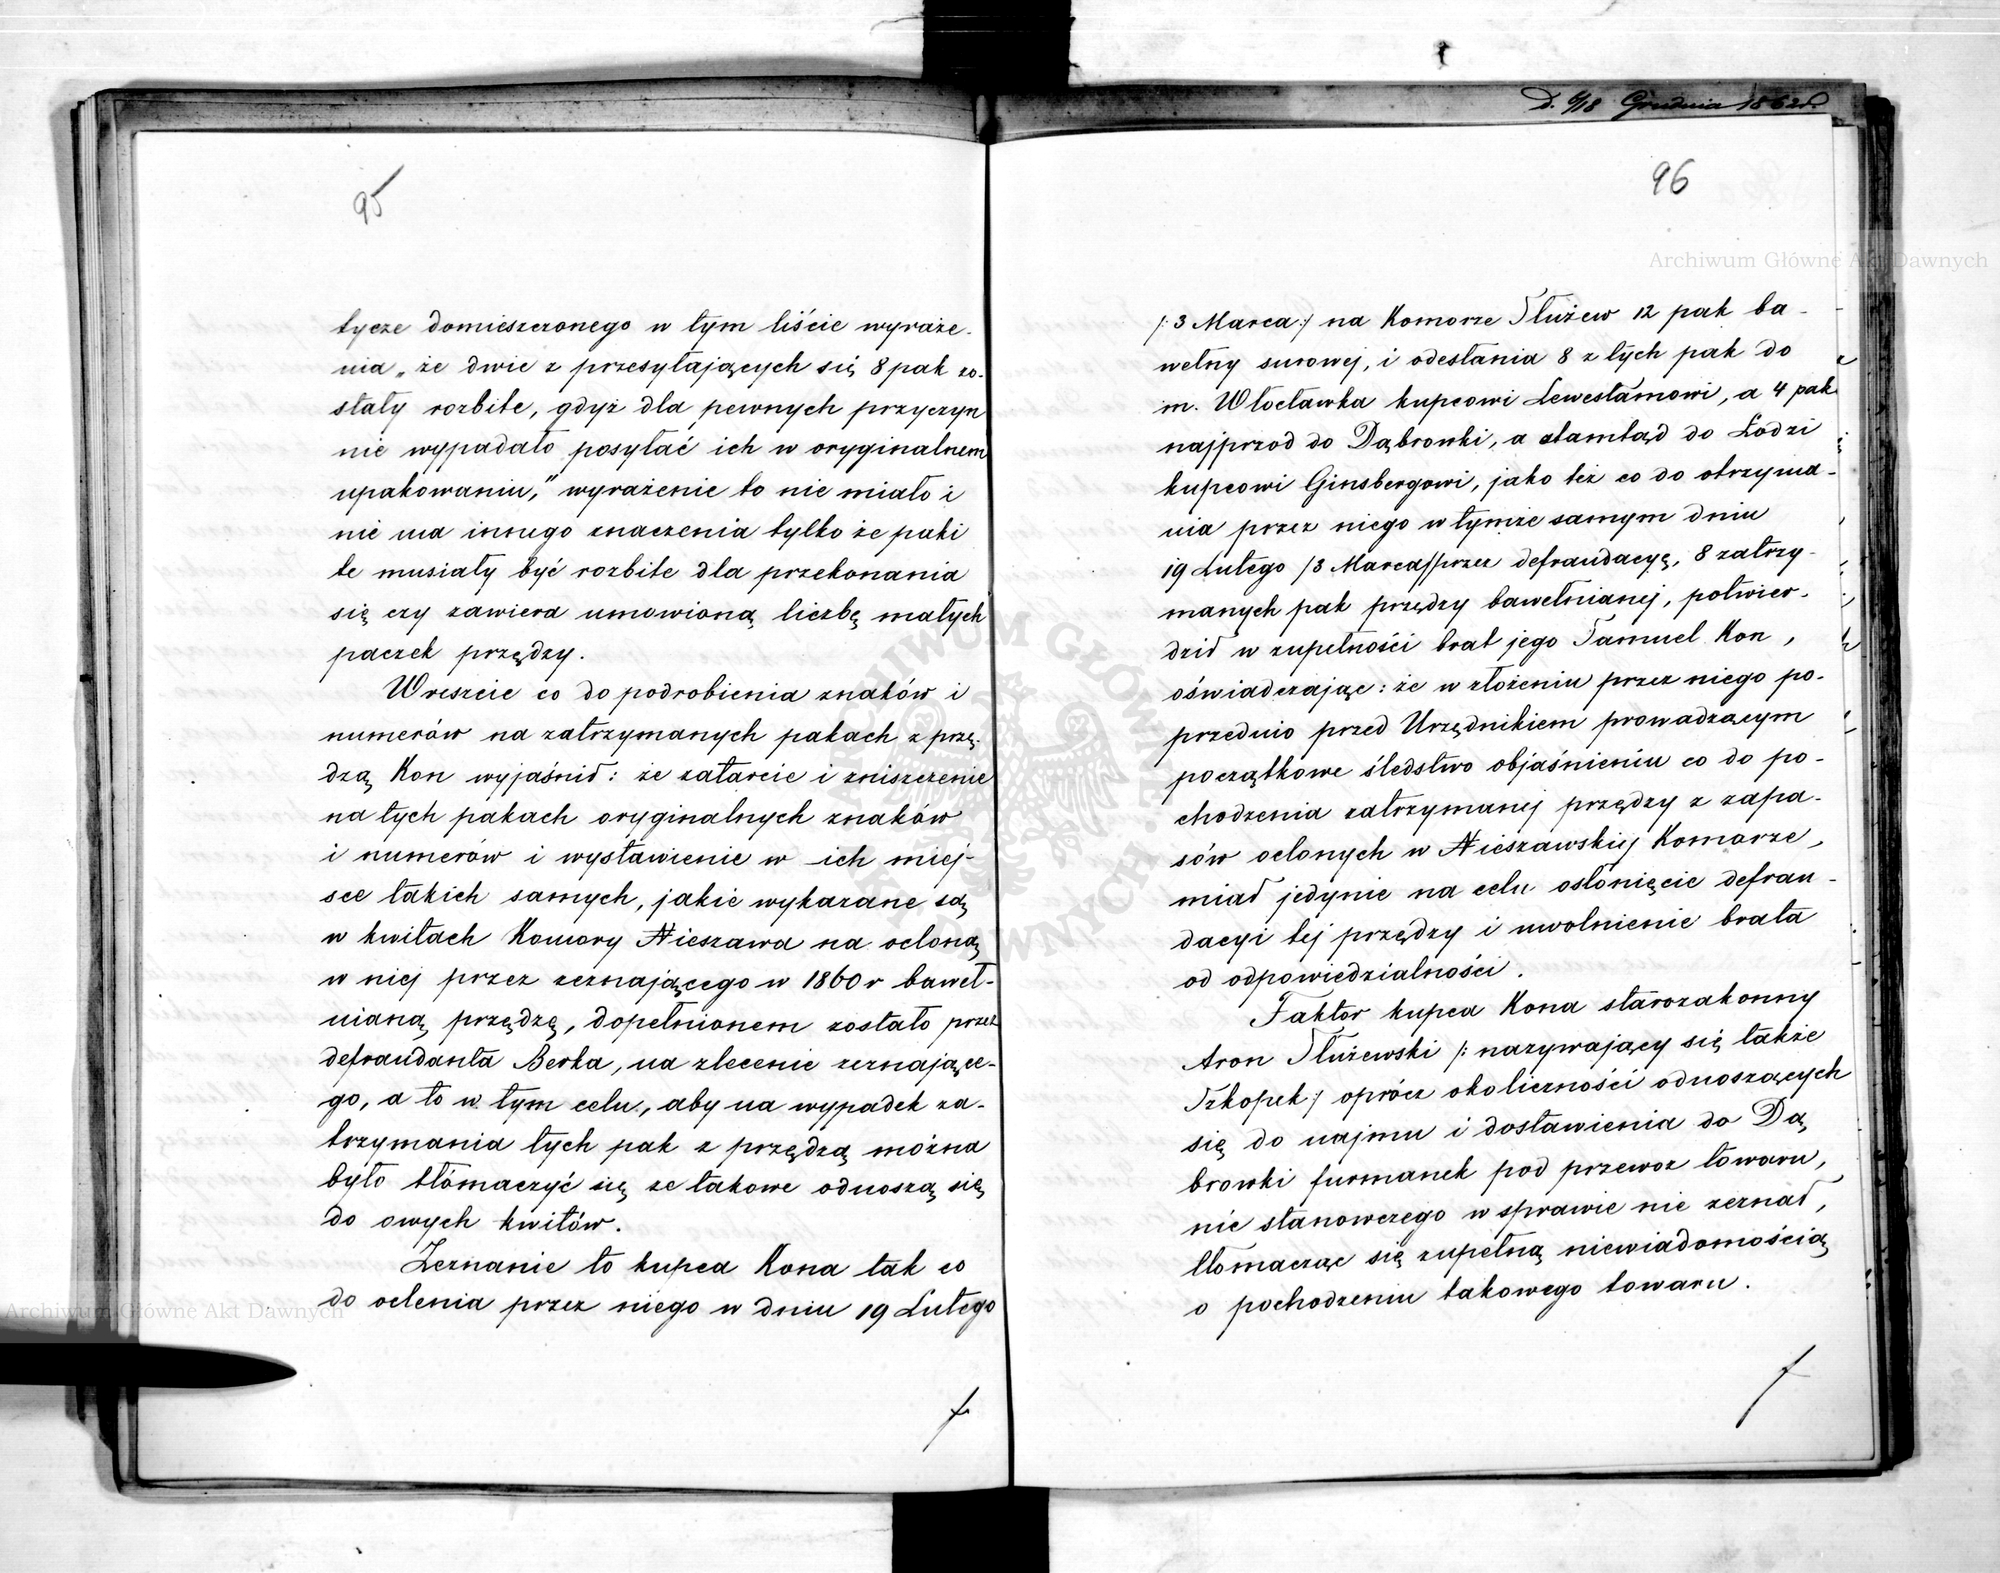 D. 6/18 Grudnia 1862 r.
95
tycze domieszczonego w tym liście wyraże-
nia „że dwie z przesyłających się 8 pak zo-
stały rozbite, gdyż dla pewnych przyczyn
nie wypadało posyłać ich w oryginalnem
upakowaniu," wyrażenie to nie miało i
nie ma innego znaczenia tylko że paki
te musiały być rozbite dla przekonania
się czy zawiera umowioną liczbę małych
paczek przędzy.
Wreszcie co do podrobienia znaków i
numerów na zatrzymanych pakach z przę-
dzą Kon wyjaśnił: że zatarcie i zniszczenie
na tych pakach oryginalnych znaków
i numerów i wystawienie w ich miej-
sce takich samych, jakie wykazane są
w kwitach Komory Nieszawa na ocloną
w niej przez zeznającego w 1860 r baweł-
nianą przędzę, dopełnionem zostało przez
defraudanta Berka, na zlecenie zeznające-
go, a to w tym celu, aby na wypadek za-
trzymania tych pak z przędzą można
było tłómaczyć się ze takowe odnoszą się
do owych kwitów.
Zeznanie to kupca Kona tak co
do oclenia przez niego w dniu 19 Lutego
96
/: 3 Marca :/ na Komorze Służew 12 pak ba-
wełny surowej, i odesłania 8 z tych pak do
m. Włocławka kupcowi Lewestamowi, a 4 pak
najprzod do Dąbrowki, a stamtąd do Łodzi
kupcowi Ginsbergowi, jako też co do otrzyma-
nia przez niego w tymże samym dniu
19 Lutego /3 Marca/ przez defraudacyę, 8 zatrzy-
manych pak przędzy bawełnianej, potwier-
dził w zupełności brat jego Samuel Kon,
oświadczając: że w złożeniu przez niego po-
przednio przed Urzędnikiem prowadzącym
początkowe śledstwo objaśnieniu co do po-
chodzenia zatrzymanej przędzy z zapa-
sów oclonych w Nieszawskiej Komorze,
miał jedynie na celu osłonięcie defrau-
dacyi tej przędzy i uwolnienie brata
od odpowiedzialności.
Faktor kupca Kona starozakonny
Aron Służewski /: nazywający się także
Szkopek :/ oprócz okoliczności odnoszących
się do najmu i dostawienia do Dą
browki furmanek pod przewoz towaru,
nic stanowczego w sprawie nie zeznał,
tłomacząc się zupełną niewiadomością
o pochodzeniu takowego towaru.
Archiwum Główne Akt Dawnych
Archiwum Główne Akt Dawnych